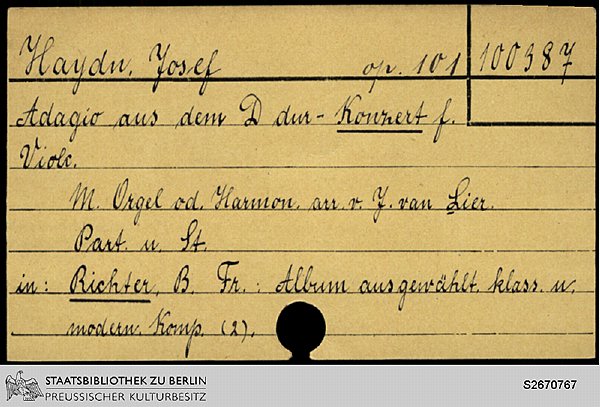 Haydn, Josef op. 101 100387
Adagio aus dem D dur- Konzert f.
Violc.
M. Orgel od. Harmon. arr. v. J. van Lier.
Part. u. St.
in: Richter, B. Fr.: Album ausgewählt. klass. u.
modern. Komp. (2).
STAATSBIBLIOTHEK ZU BERLIN
PREUSSISCHER KULTURBESITZ
S2670767